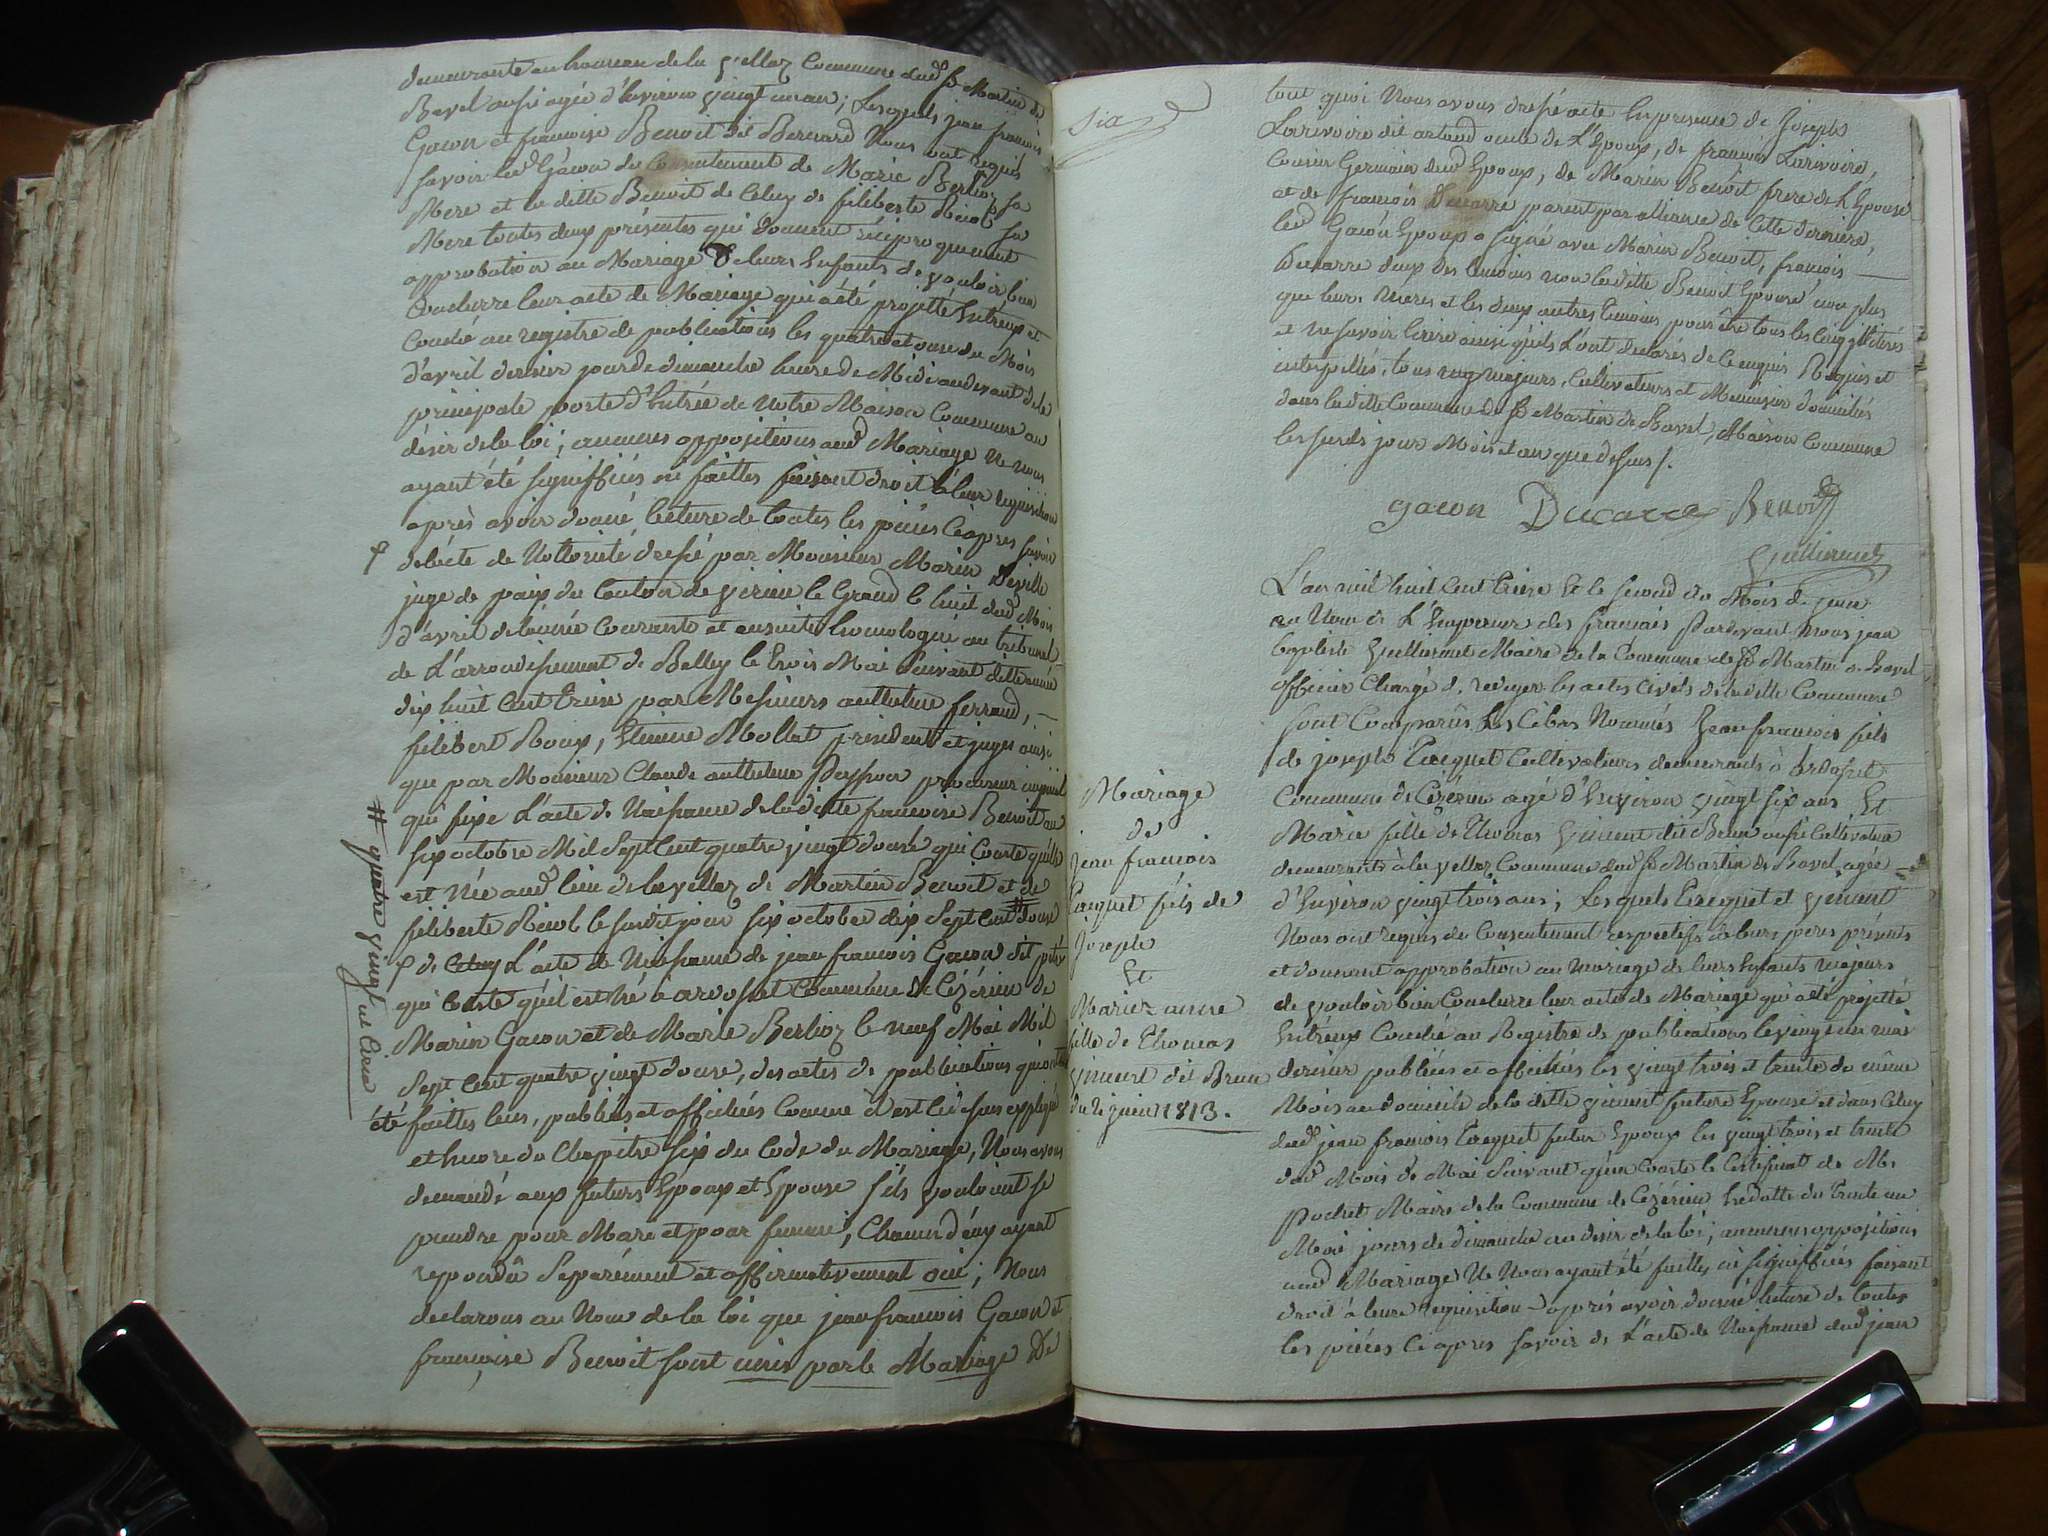 demeurante au hameau de la Vellaz Commune dud. St Martin de
Bavel aussi agée d'Environ vingt un an; Lesquels jean françois
Gacon et françoise Benoit dit Bernard Nous ont requis
savoir led. Gacon du Consentement de Marie Berlioz sa
Mere et la ditte Benoit de Celuy de filiberte sa
Mere toutes deux présentes qui donnent réciproquement
approbation au Mariage de leurs Enfants de vouloir bien
Conclurre leur acte de Mariage qui a été projetté Entreux et
Couché au registre de publications les quatre et onze du Mois
d'avril dernier jour de dimanche heure de Midi au devant de la
principale porte d'Entrée de Notre Maison Commune au
désir de la loi; aucunes oppositions aud. Mariage Ne nous
ayant été signiffiées ni faittes faisant droit à leur requisition
après avoir donné lecture de toutes les pièces Ciapres savoir
de l'acte de Nottorieté dressé par Monsieur Marin Deville
juge de paix du Canton de virieu le Grand le huit dud. Mois
d'avril de lannée Courante et ensuite homologué au tribunal
de L'arrondissement de Belley le trois Mai Suivant ditte année
dix huit Cent treize par Messieurs anthelme ferrand,
filibert Roux, Etienne Mollet président et juges ainsi
que par Monsieur Claude anthelme Peysson procureur imperial
qui fixe L'acte de Naissance de laditte françoise Benoit au
six octobre Mil Sept Cent quatre vingt douze qui Conste quelle
est Née aud. lieu de la vellaz de Martin Benoit et de
filiberte le susdit jour six octobre dix Sept Cent # douze
de Celuy L'acte de Naissance de jean francois Gacon dit
qui Conste quil est Né à arvosset Commune de Cézérieu de
Marin Gacon et de Marie Berlioz le neuf Mai Mil
Sept Cent quatre vingt douze, des actes de publications qui ont
été faittes lues, publiées et affichées Comme il est cidessus expliqué
et lecture du Chapitre Six du Code du Mariage, Nous avons
demandé aux futurs Epoux et Epouse s'ils vouloient se
prendre pour Mari et pour femme; Chacun d'eux ayant
repondu Séparément et affirmativement oui; Nous
declarons au Nom de la loi que jean francois Gacon et
françoise Benoit sont unis par le Mariage De
# quatre vingt
six
tout quoi Nous avons dressé acte En presence de Joseph
Larivoire dit artaud oncle de L'Epoux, de francois Larivoire,
Cousin Germain dud. Epoux, de Marin Benoit frere de L'Epouse
et de francois Ducarre parent par alliance de Cette derniere,
led. Gacon Epoux a signé avec Marin Benoit, françois
Ducarre deux des temoins non laditte Benoit Epouse non plus
que leurs Meres et les deux autres temoins pour être tous les Cinq illitérés
et ne savoir Ecrire ainsi quils L'ont declarés de Ce enquis Requis et
interpellés, tous majeurs, Cultivateurs et Menuisier domiciliés
dans laditte Commune de St Martin de Bavel, Maison Commune
les susdits jour Mois et an que dessus /.
gacon Ducarre Benoit
Guillermet
L'an mil huit Cent treize Et le second du Mois de juin
au Nom de L'Empereur des francais Pardevant Nous jean
baptiste Guillermet Maire de la Commune de St Martin de Bavel
officier Chargé de rediger les actes Civils de laditte Commune
sont Comparus Les Cibas Nommés Jean francois fils
de joseph Cultivateurs demeurants à ardosset
Commune de Cézérieu agé d'Environ vingt six ans Et
Marie fille de Thomas vincent dit Brun aussi Cultivateur
demeurants à la vellaz Commune dud. St Martin de Bavel agée
d'Environ vingt trois ans; Lesquels et vincent
Nous ont requis du Consentement respectifs de leurs peres présents
et donnent approbation au mariage de leurs Enfants majeurs
de vouloir bien Conclurre leur acte de Mariage qui a été projetté
Entreux Couché au Registre de publications le vingt un mai
dernier publiées et affichées les vingt trois et trente du même
Mois au domicile de la ditte vincent future Epouse et dans Celuy
dud. jean francois futur Epoux les vingt trois et trente
dud. Mois de Mai Suivant qu'en Conste le Certificat de Mr
Pochet Maire de la Commune de Cézérieu En datte du Trente un
Mai jours de dimanche au desir de la loi; aucunes oppositions
aud. Mariage Ne Nous ayant été faittes ni signiffiées faisant
droit à leure requisition, après avoir donné lecture de toutes
les pièces Ciapres savoir de L'acte de Naissance dud. jean
Mariage
de
jean francois
fils de
Joseph
Et
Marie anne
fille de Thomas
vincent dit Brun
du 2 juin 1813.